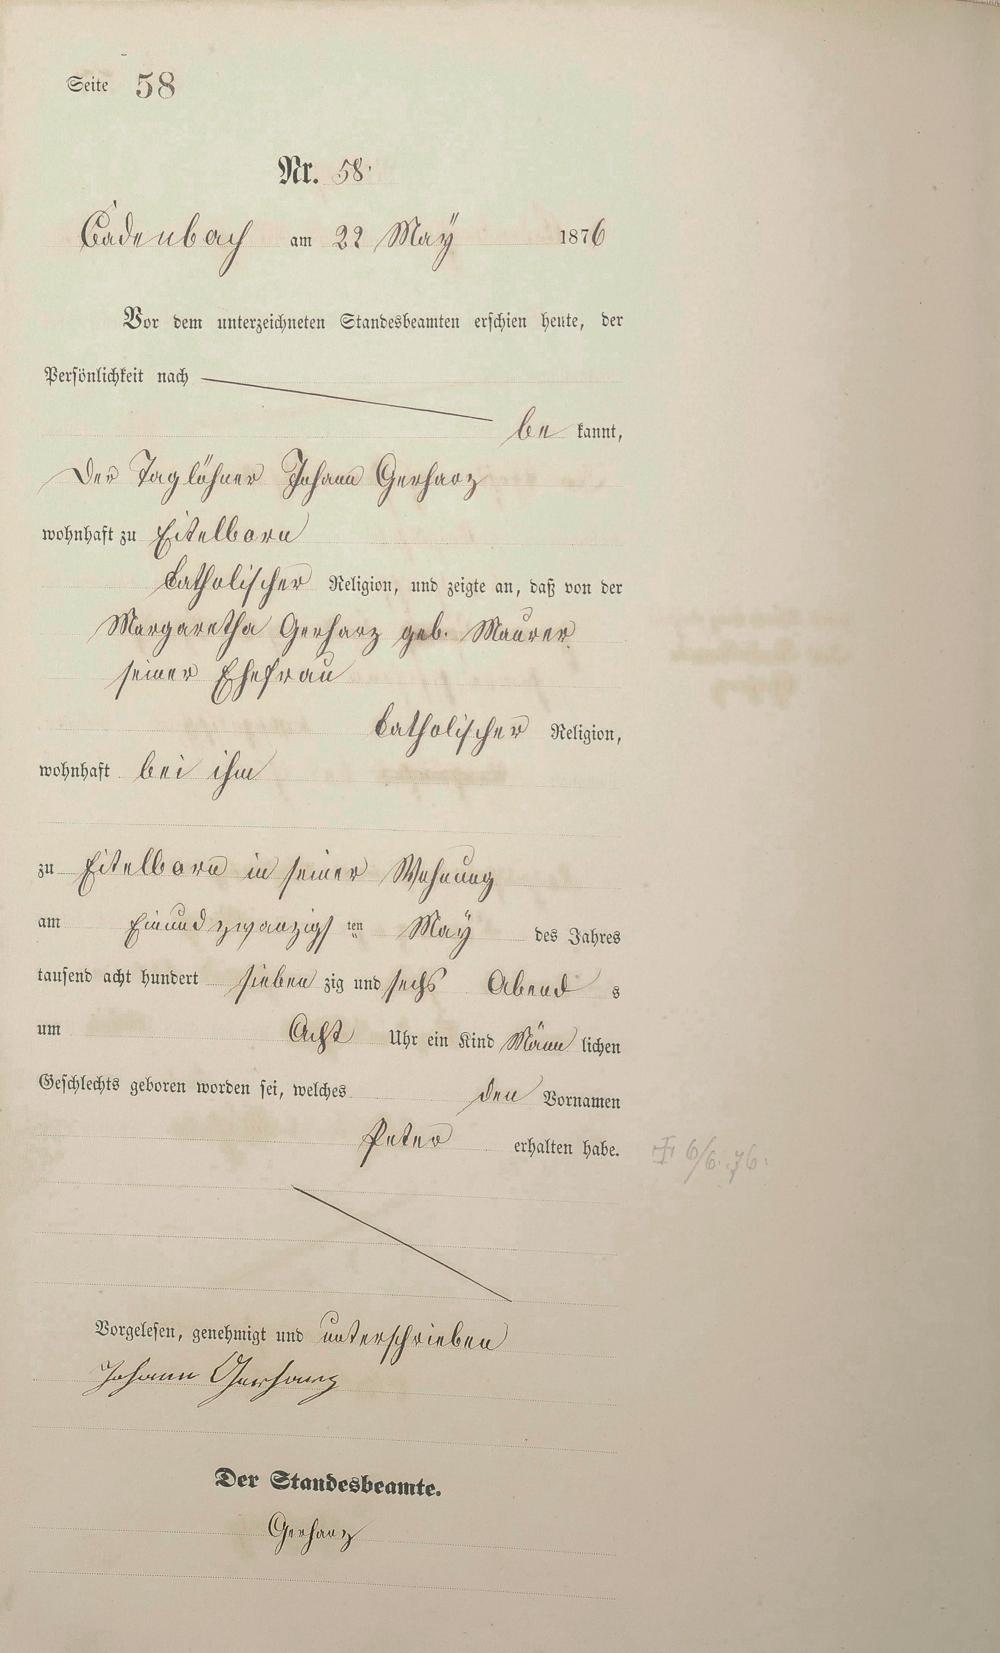 Seite 58
Nr. 58.
Cadenbach am 22 Maÿ 1876
Vor dem unterzeichneten Standesbeamten erschien heute, der
Persönlichkeit nach
be kannt,
der Taglöhner Johann Gerharz
wohnhaft zu Eitelborn
katholischer Religion, und zeigte an, daß von der
Margaretha Gerharz geb. Maurer
seiner Ehefrau
katholischer Religion,
wohnhaft bei ihm
zu Eitelborn in seiner Wohnung
am Einundzwanzigs ten Maÿ des Jahres
tausend acht hundert sieben zig und sechs Abend s
um Acht Uhr ein Kind Männ lichen
Geschlechts geboren worden sei, welches den Vornamen
Peter erhalten habe.
† 6/6. 76.
Vorgelesen, genehmigt und unterschrieben
Johann Gerharz
Der Standesbeamte.
Gerharz